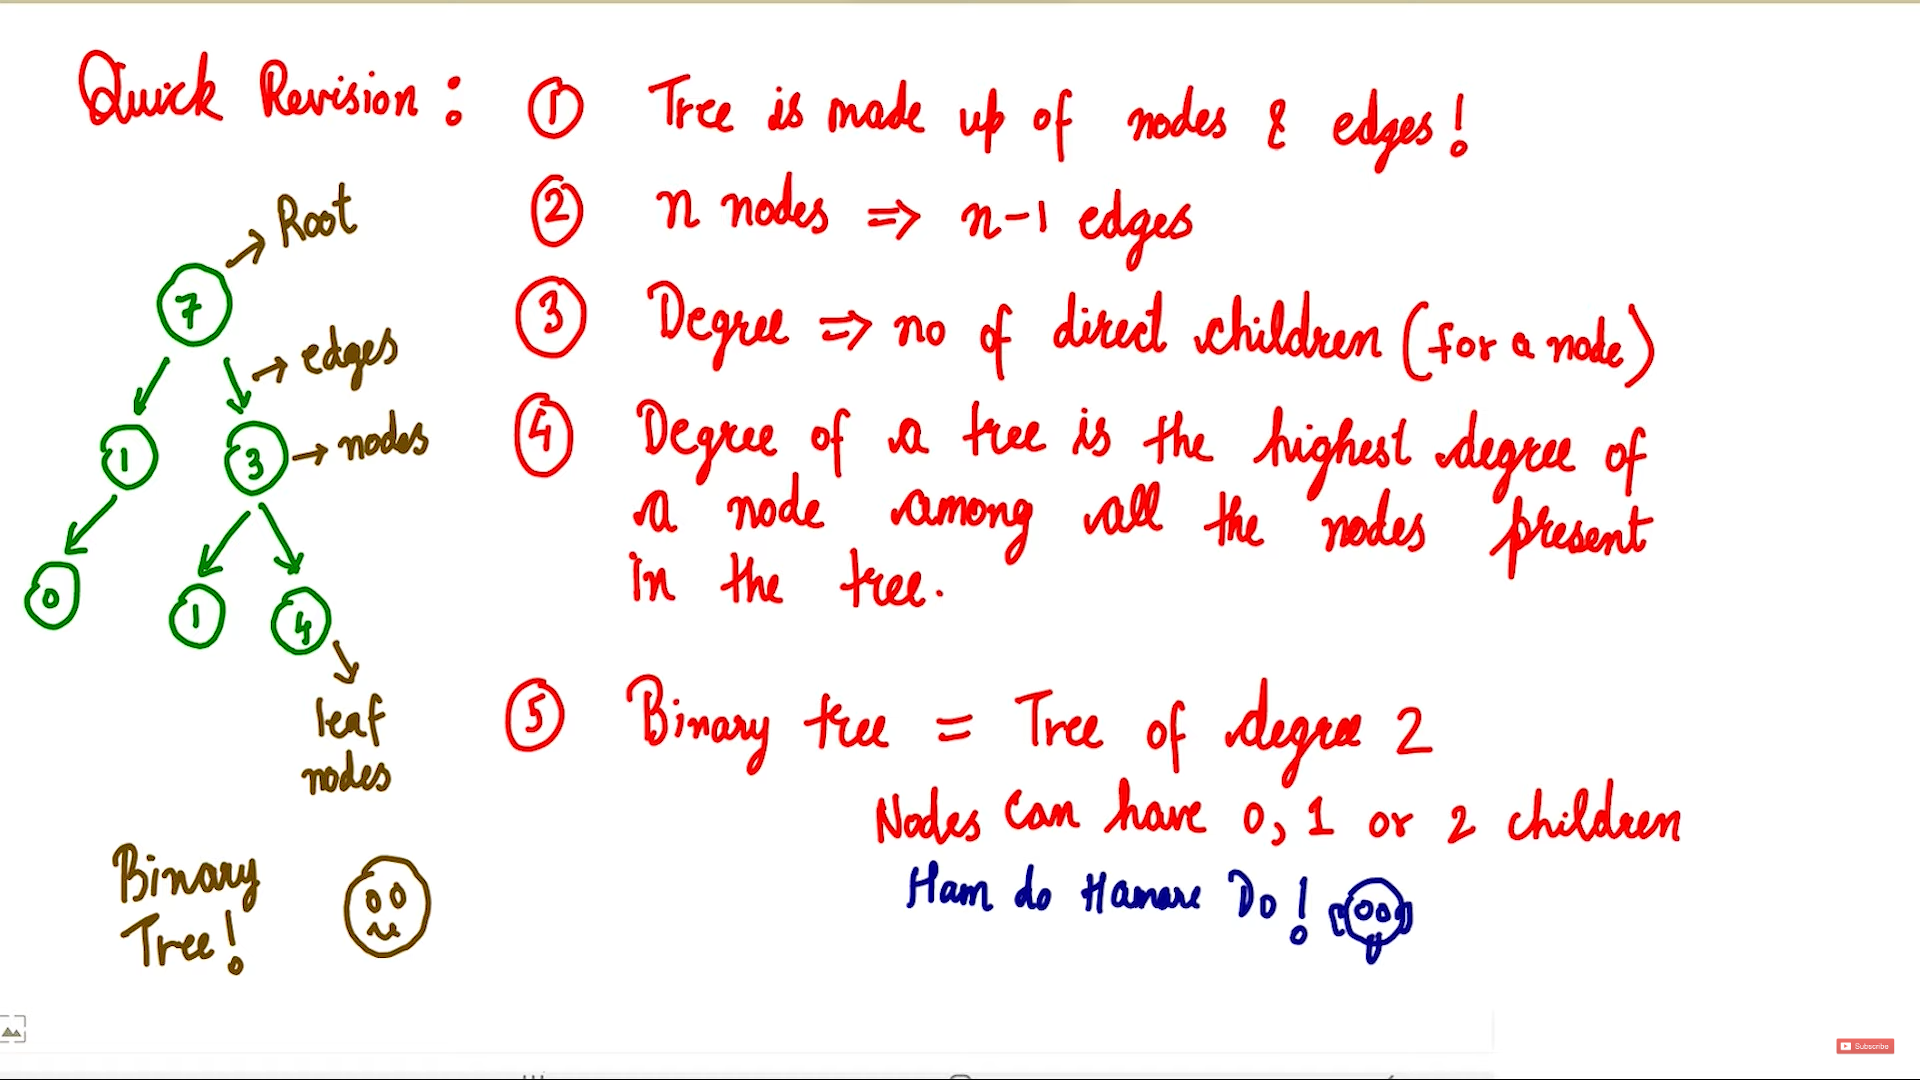 Quick Revision :
① Tree is made up of nodes & edges!
② n nodes => n-1 edges
③ Degree => no of direct children (for a node)
④ Degree of a tree is the highest degree of
a node among all the nodes present
in the tree.
⑤ Binary tree = Tree of degree 2
Nodes can have 0, 1 or 2 children
Ham do Hamare Do!
→ Root
7
→ edges
1
3
→ nodes
0
1
4
leaf
nodes
Binary
Tree!
Subscribe